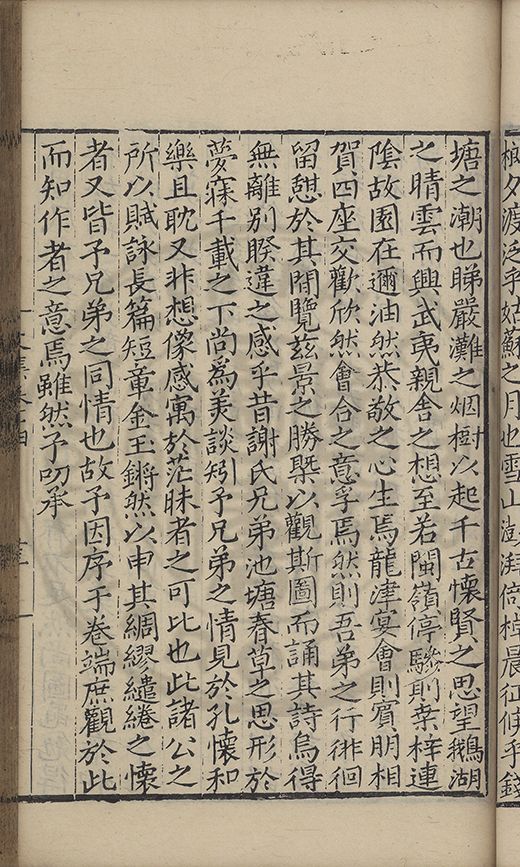 榔夕渡泛乎姑蘇之月也雪山澎湃倚棹晨征俯乎錢
塘之潮也睇嚴灘之烟樹以起千古懷賢之思望鵝湖
之晴雲而興武夷親舍之想至若閩嶺停驂則桒梓連
隂故園在邇油然恭敬之心生焉龍津宴會則賔朋相
賀四座交歡欣然會合之意孚焉然則吾弟之行徘徊
留憇於其間覽玆景之勝槩以觀斯圖而誦其詩烏得
無離别睽違之感乎昔謝氏兄弟池塘春草之思形於
夢寐千載之下尚為美談矧予兄弟之情見於孔懷和
樂且耽又非想像感寓於茫昧者之可比也此諸公之
所以賦詠長篇短章金玉鏘然以申其綢繆繾綣之懷
者又皆予兄弟之同情也故予因序于卷端庶觀於此
而知作者之意焉雖然予叨承